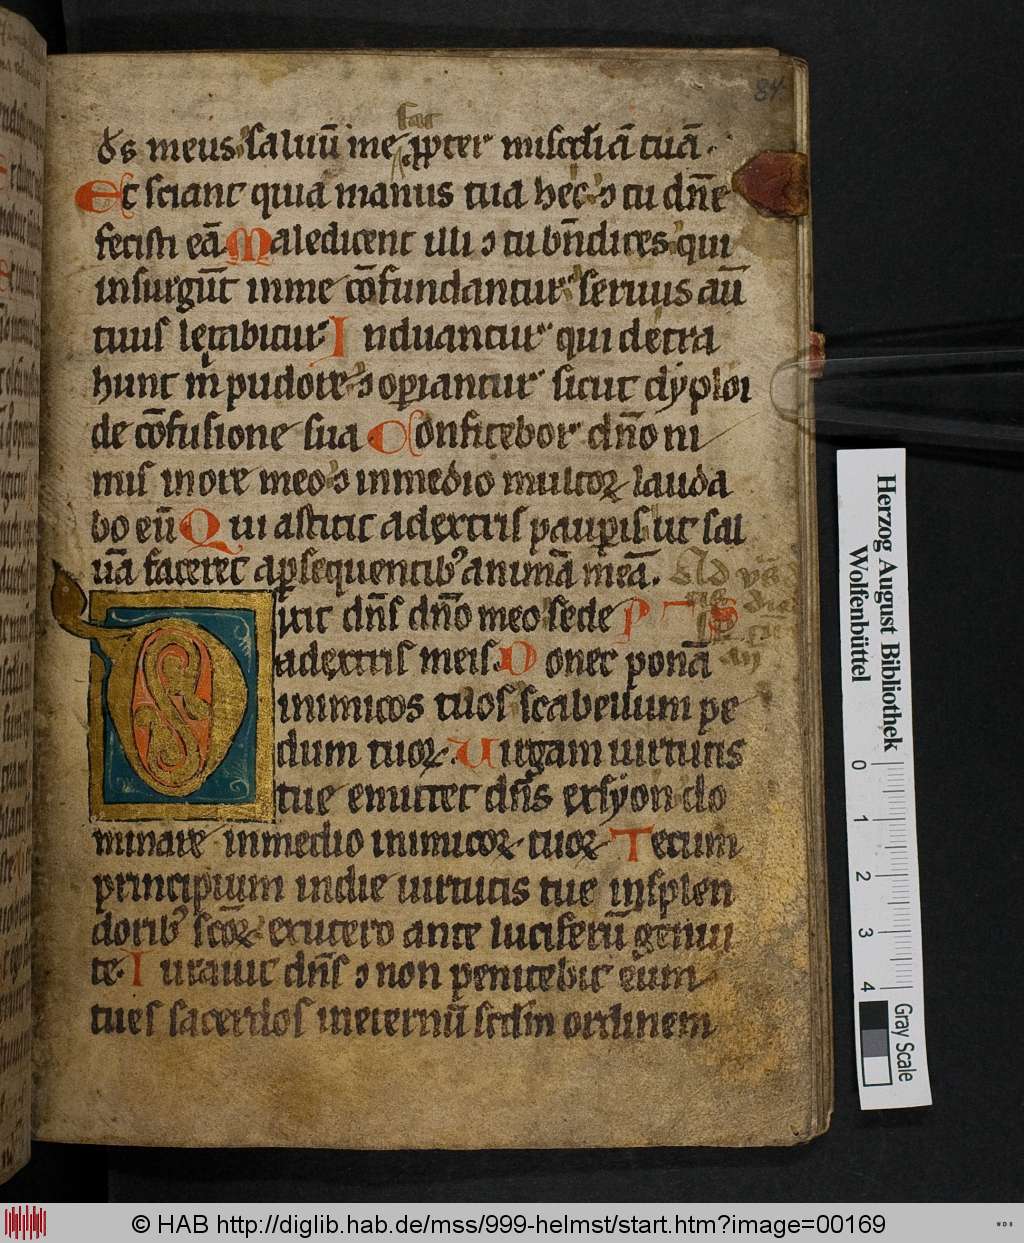 84
fac
ds meus saluū me ꝓpter misc̄diā tuā.
Et sciant quia manus tua hec ⁊ tu dn̄e
fecisti eā Maledicent illi ⁊ tu bn̄dices qui
insurgūt inme cōfundantur seruus aū
tuus letabitur. Induantur qui detra
hunt m̄ pudore ⁊ oꝑiantur sicut dyploi
de cōfusione sua Confitebor dn̄o ni
mis inore meo ⁊ inmedio multoꝝ lauda
bo eū Qui astitit adextris pauꝑis ut sal
uā faceret aꝑsequentibꝰ animā meā. Ad
Dixit dn̄s dn̄o meo sede PS
adextris meis. Donec ponā
inimicos tuos scabellum pe
dum tuoꝝ. Uirgam uirtutis
tue emittet dn̄s exsyon do
minare inmedio inimicoꝝ tuoꝝ Tecum
principium indie uirtutis tue insplen
doribꝰ sc̄oꝝ exutero ante luciferū genui
te. Iurauit dn̄s ⁊ non penitebit eum
tu es sacerdos ineternū scd̄m ordinem
Herzog August Bibliothek
Wolfenbüttel
0 1 2 3 4
Gray Scale
© HAB http://diglib.hab.de/mss/999-helmst/start.htm?image=00169